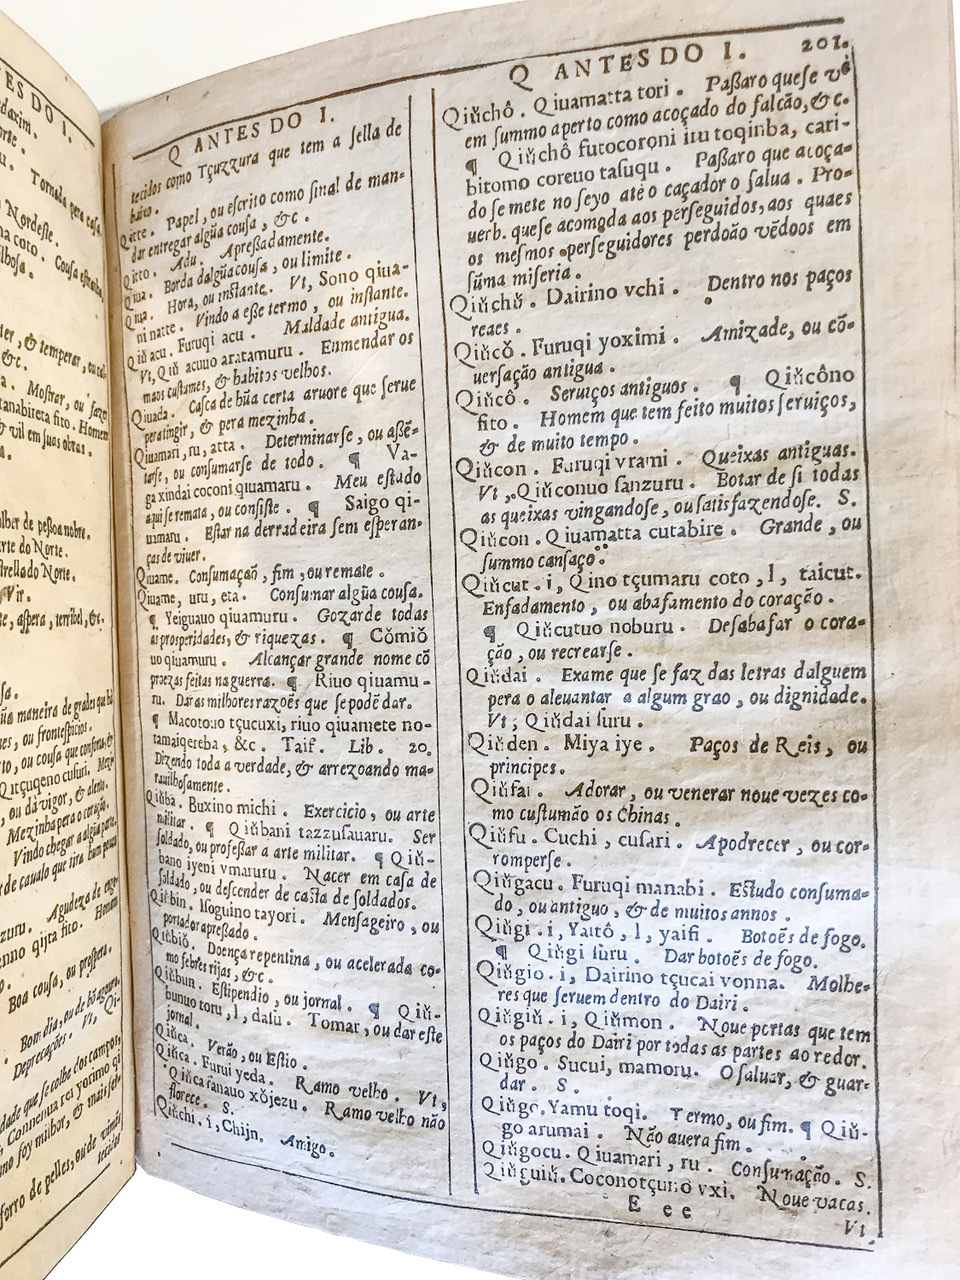 ES DO I.
daxim.
orte.
Tornada pera casa.
Nordeste.
na coto. Cousa
lhosa.
ter, & temperar, ou
&c.
a. Mostrar, ou fazer
tanabireta fito. Homem
& vil em suas obras.
olher de pessoa nobre.
arte do Norte.
strella do Norte.
Vir.
te, aspera, terribel, &c.
sa.
ũa maneira de grades que
es, ou frontespicios.
to, ou cousa que conforta, &
Qitçuqeno cusuri. Mezi
, ou dá vigor, & alento.
Mezinha pera o coração.
Vindo chegar a algũa parte.
r de caualo que tira hum pouco
Agudeza de enge
zuru. Homem
nno qijta fito.
Boa cousa, ou prospera.
o.
Bom dia, ou de bõ agouro.
Deprecações. Vt, Qi-
dade que se colhe dos campos,
Connenua rei yorimo qi
no foy milhor, & mais fer-
forro de pelles, ou de vimẽs
tecidos
Q ANTES DO I.
tecidos como Tçuzzura que tem a sella de
baixo.
Qitte. Papel, ou escrito como sinal de man-
dar entregar algũa cousa, &c.
Qitto. Adu. Apreßadamente.
Qiua. Borda dalgũa cousa, ou limite.
Qiua. Hora, ou instante. Vt, Sono qiua-
ni natte. Vindo a eße termo, ou instante.
Qiŭ acu. Furuqi acu. Maldade antigua.
Vt, Qiŭ acuuo aratamuru. Enmendar os
maos custumes, & habitos velhos.
Qiuada. Casca de hũa certa aruore que serue
pera tingir, & pera mezinha.
Qiuamari, ru, atta. Determinarse, ou aßẽ-
tarse, ou consumarse de todo. ¶ Va-
ga xindai coconi qiuamaru. Meu estado
aqui se remata, ou consiste. ¶ Saigo qi-
uamaru. Estar na derradeira sem esperan-
ças de viuer.
Qiuame. Consumaçañ, fim, ou remate.
Qiuame, uru, eta. Consumar algũa cousa.
¶ Yeiguauo qiuamuru. Gozar de todas
as prosperidades, & riquezas. ¶ Cŏmiŏ
uo qiuamuru. Alcançar grande nome cõ
proezas feitas na guerra. ¶ Riuo qiuamu-
ru. Dar as milhores razões que se podẽ dar.
¶ Macotouo tçucuxi, riuo qiuamete no-
tamaiqereba, &c. Taif. Lib. 20.
Dizendo toda a verdade, & arrezoando ma-
rauilhosamente.
Qiŭba. Buxino michi. Exercicio, ou arte
militar. ¶ Qiŭbani tazzusauaru. Ser
soldado, ou profeßar a arte militar. ¶ Qiŭ-
bano iyeni vmaruru. Nacer em casa de
soldado, ou descender de casta de soldados.
Qiŭbin. Isoguino tayori. Mensageiro, ou
portador apreßado.
Qiŭbiŏ. Doença repentina, ou acelerada co-
mo febres rijas, &c.
Qiŭbun. Estipendio, ou jornal. ¶ Qiŭ-
bunuo toru, l, dasu. Tomar, ou dar este
jornal.
Qiŭca. Verão, ou Estio.
Qiŭca. Furui yeda. Ramo velho. Vt,
Qiŭca fanauo xŏjezu. Ramo velho não
florece. S.
Qiŭchi. i, Chijn. Amigo.
Q ANTES DO I. 201.
Qiŭchô. Qiuamatta tori. Paßaro que se vè
em summo aperto como acoçado do falcão, & c.
¶ Qiŭchô futocoroni itu toqinba, cari-
bitomo coreuo tasuqu. Paßaro que acoça-
do se mete no seyo atè o caçador o salua. Pro-
uerb. que se acomoda aos perseguidos, aos quaes
os mesmos perseguidores perdoão vẽdoos em
sũma miseria.
Qiŭchŭ. Dairino vchi. Dentro nos paços
reaes.
Qiŭcŏ. Furuqi yoximi. Amizade, ou cõ-
uersação antigua.
Qiŭcô. Seruiços antiguos. ¶ Qiŭcôno
fito. Homem que tem feito muitos seruiços,
& de muito tempo.
Qiŭcon. Furuqi vrami. Queixas antiguas.
Vt, Qiŭconuo sanzuru. Botar de si todas
as queixas vingandose, ou satisfazendose. S.
Qiŭcon. Qiuamatta cutabire. Grande, ou
summo cansaço.
Qiŭcut. i, Qino tçumaru coto, l, taicut.
Enfadamento, ou abafamento do coração.
¶ Qiŭcutuo noburu. Desabafar o cora-
ção, ou recrearse.
Qiŭdai. Exame que se faz das letras dalguem
pera o aleuantar a algum grao, ou dignidade.
Vt, Qiŭdai suru.
Qiŭden. Miya iye. Paços de Reis, ou
principes.
Qiŭfai. Adorar, ou venerar noue vezes co-
mo custumão os Chinas.
Qiŭfu. Cuchi, cusari. Apodrecer, ou cor-
romperse.
Qiŭgacu. Furuqi manabi. Estudo consuma-
do, ou antiguo, & de muitos annos.
Qiŭgi. i, Yaitô, l, yaifi. Botoẽs de fogo.
¶ Qiŭgi suru. Dar botoẽs de fogo.
Qiŭgio. i, Dairino tçucai vonna. Molhe-
res que seruem dentro do Dairi.
Qiŭgiŭ. i, Qiŭmon. Noue portas que tem
os paços do Dairi por todas as partes ao redor.
Qiŭgo. Sucui, mamoru. O saluar, & guar-
dar. S.
Qiŭgo. Yamu toqi. Termo, ou fim. ¶ Qiŭ-
go arumai. Não auera fim.
Qiŭgocu. Qiuamari, ru. Consumação. S.
Qiŭguiŭ. Coconotçuno vxi. Noue vacas.
E ee
Vt,